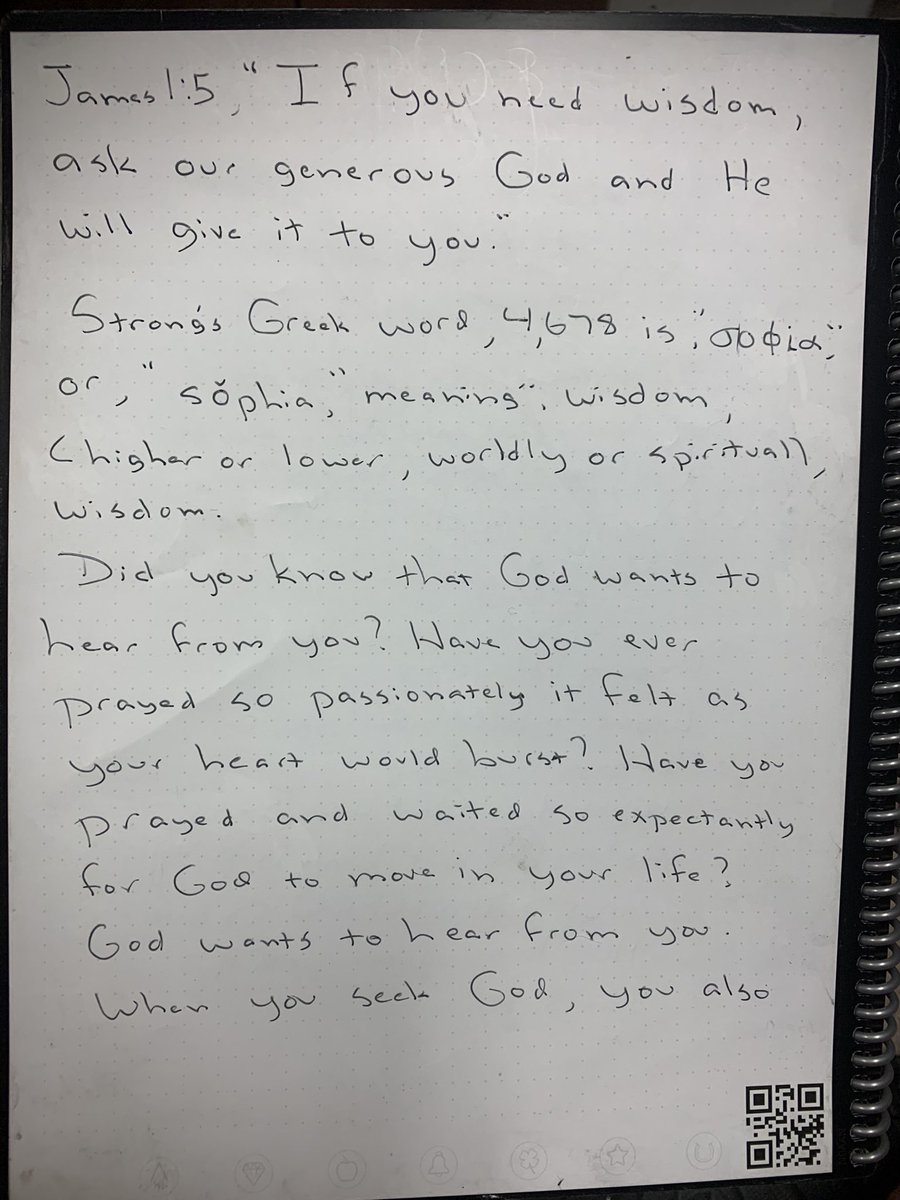 James 1:5, "If you need wisdom,
ask our generous God and He
will give it to you."
Strong's Greek word, 4,678 is, "σοφία,"
or, "sŏphia," meaning", wisdom,
(higher or lower, worldly or spiritual),
wisdom.
Did you know that God wants to
hear from you? Have you ever
prayed so passionately it felt as
your heart would burst? Have you
prayed and waited so expectantly
for God to move in your life?
God wants to hear from you.
When you seek God, you also